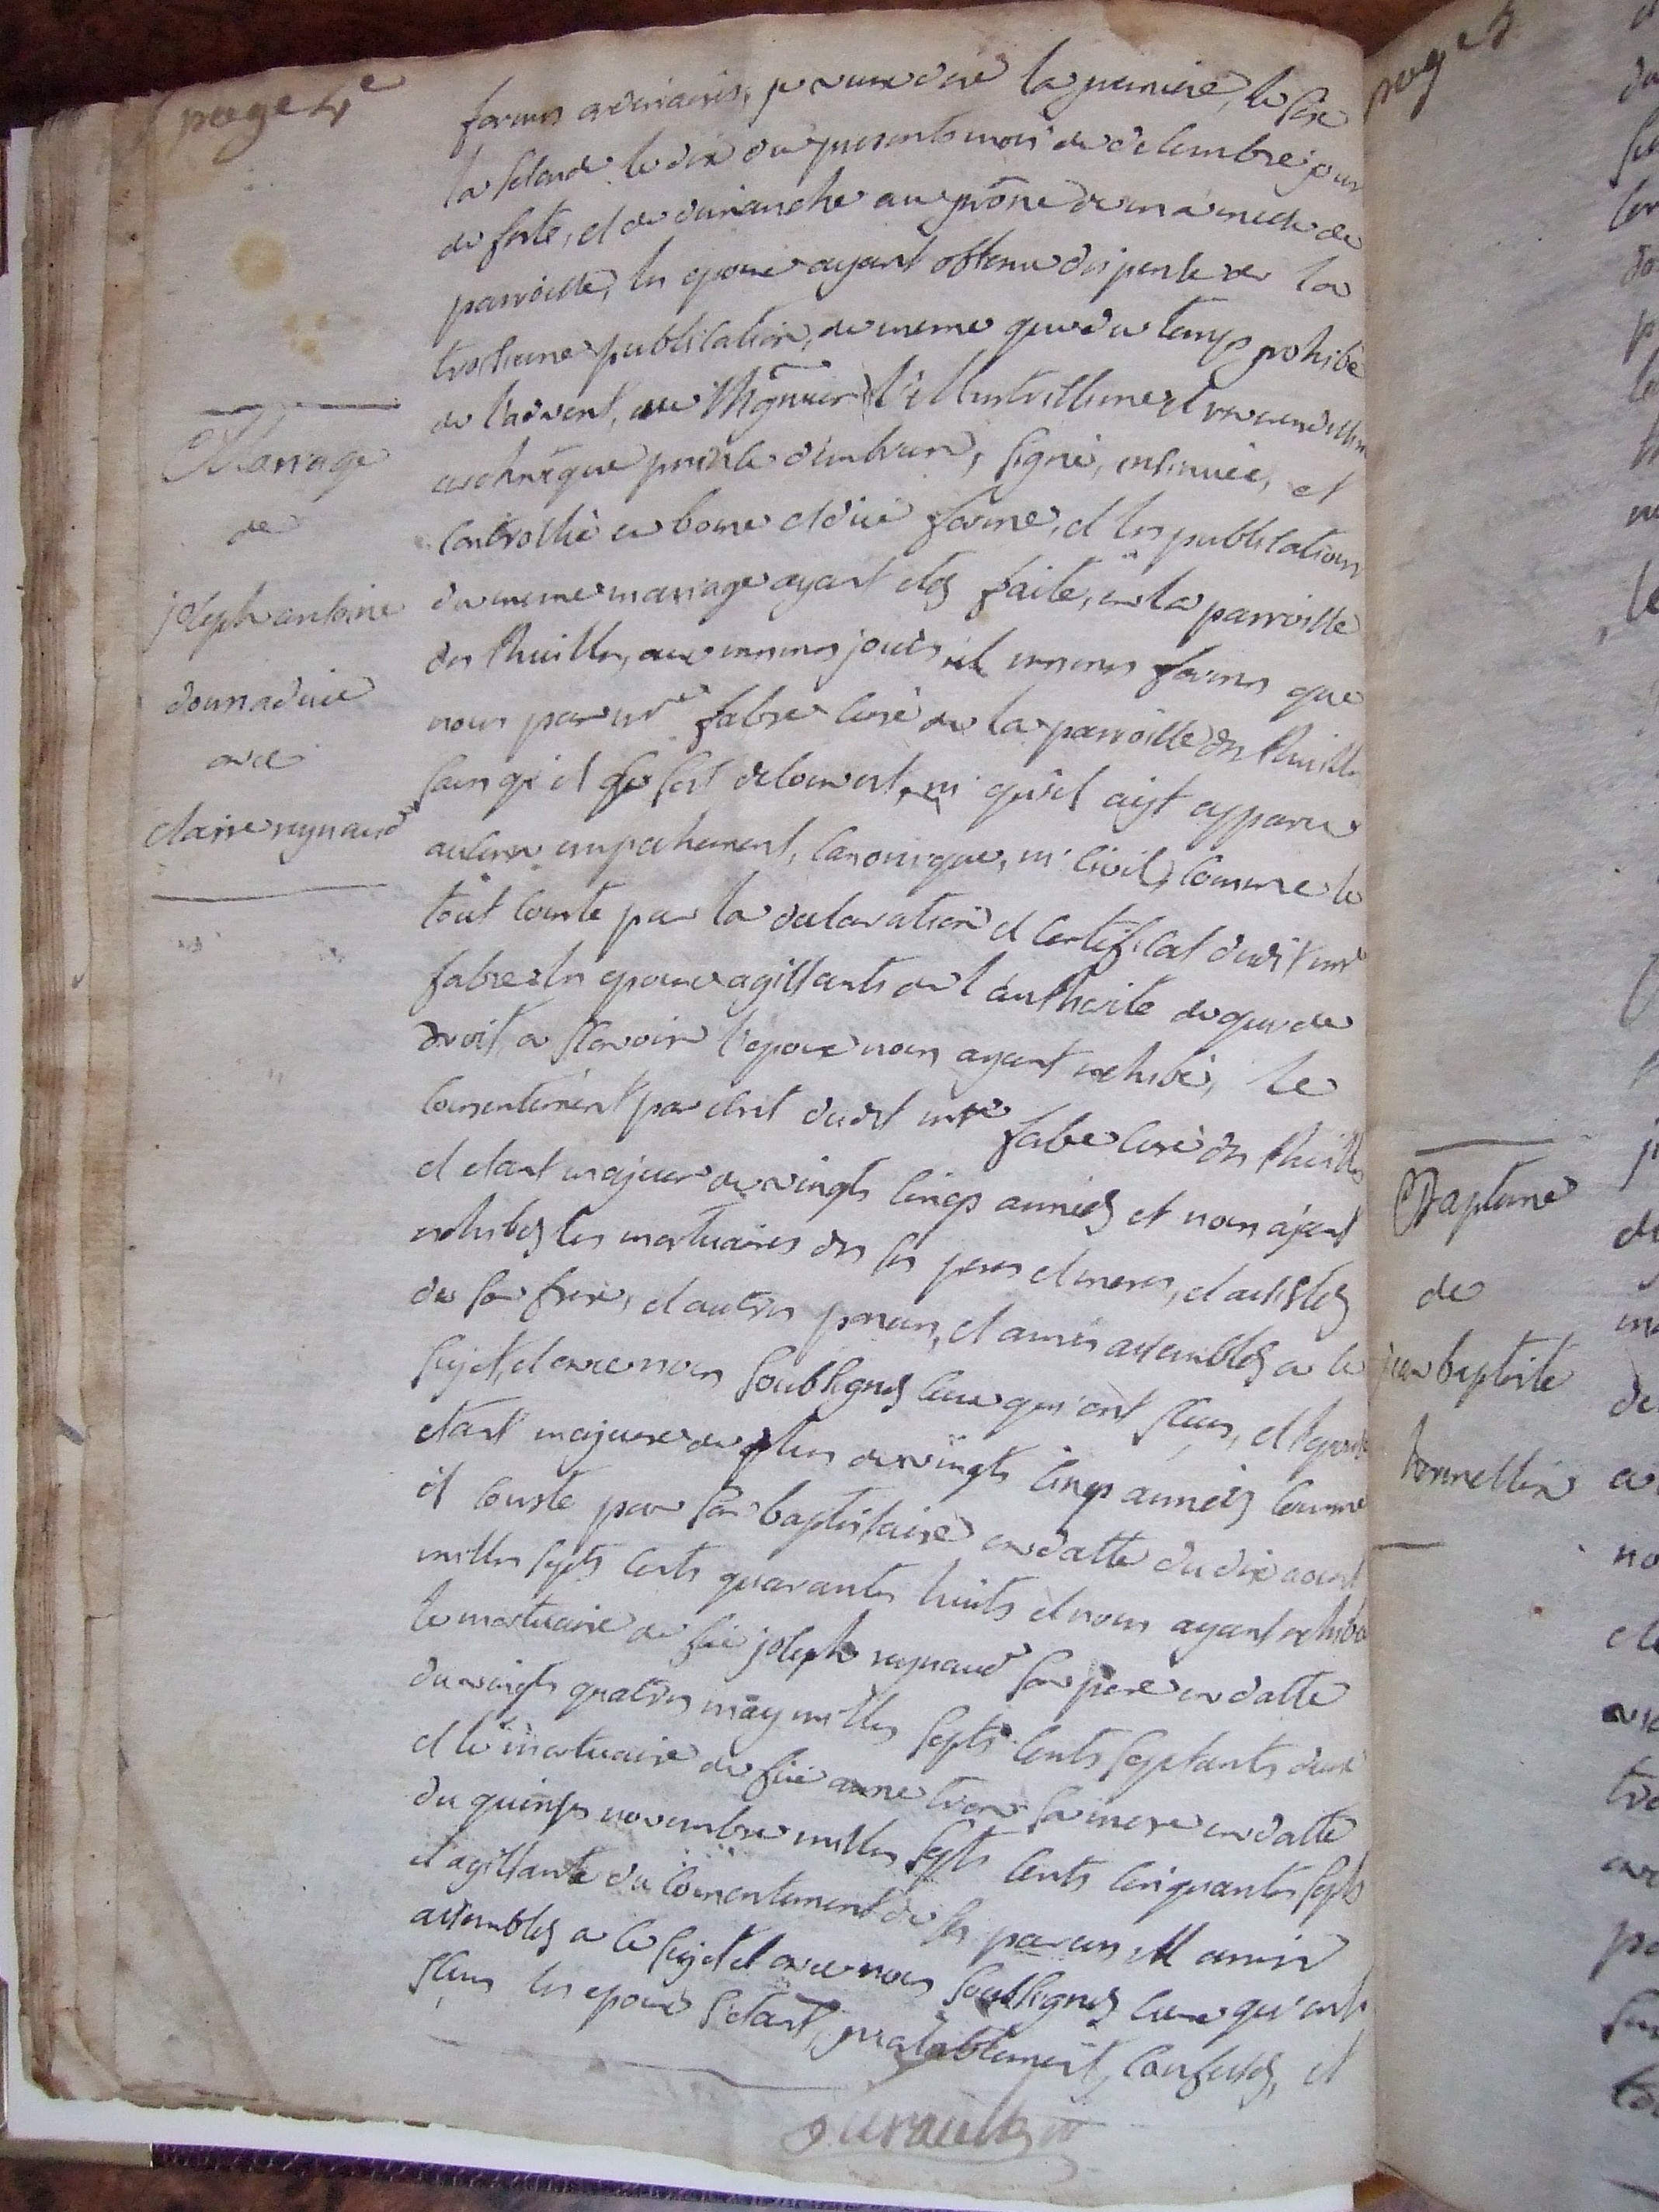 page 4e
formes ordinaires, la premiere, le six
la seconde le dix du present mois de decembre jour
de feste, et de dimanche au prône de ma messe de
parroisse, les epoux ayant obtenu dispense de la
troisieme publication, de meme que du temps prohibé
de l'advent, de Mgneur l'illustrissime et reverendissime
archevêque prince d'embrun, signé, insinuée, et
controllée en bonne et düe forme, et les publications
du meme mariage ayant etés faite, en la parroisse
des Thuilles, aux memes jours et memes formes que
nous par mre fabre curé de la parroisse des Thuilles
sans qu'il se soit decouvert, ni qu'il ayt apparu
aucun empechement, canonique, ni civil, comme le
tout conste par la declaration et certificat dudit mre
fabre les epoux agissants de l'authorité de qui de
droit, a sçavoir l'epoux nous ayant exhibé, le
consentement par ecrit dudit mre fabre curé des Thuilles
et etant majeur de vingts cinqs années et nous ayant
exhibés les mortuaires des ses peres et meres, et assistés
de son frere, et autres parens, et amis assemblés a ce
sujet, et avec nous soubsignés ceux qui ont sçeus, et l'epouse
etant majeure de plus de vingts cinqs années comme
il conste par son baptistaire en datte du dix aoust
milles septs cents quarantes huits et nous ayant exhibé
le mortuaire de feu joseph reynaud son pere en datte
du vingts quatres may milles septs cents septantes deux
et le mortuaire de feüe anne sa mere en datte
du quinses novembre milles septs cents cinquantes septs
et agissante du consentement de ses parens et amis
assemblés a ce sujet et avec nous soussignés ceux qui ont
sçeus les epoux s'etant prealablement confessés, et
Mariage
de
joseph antoine
donnadieu
avec
claire reynaud
page 5
Bapteme
de
jean baptiste